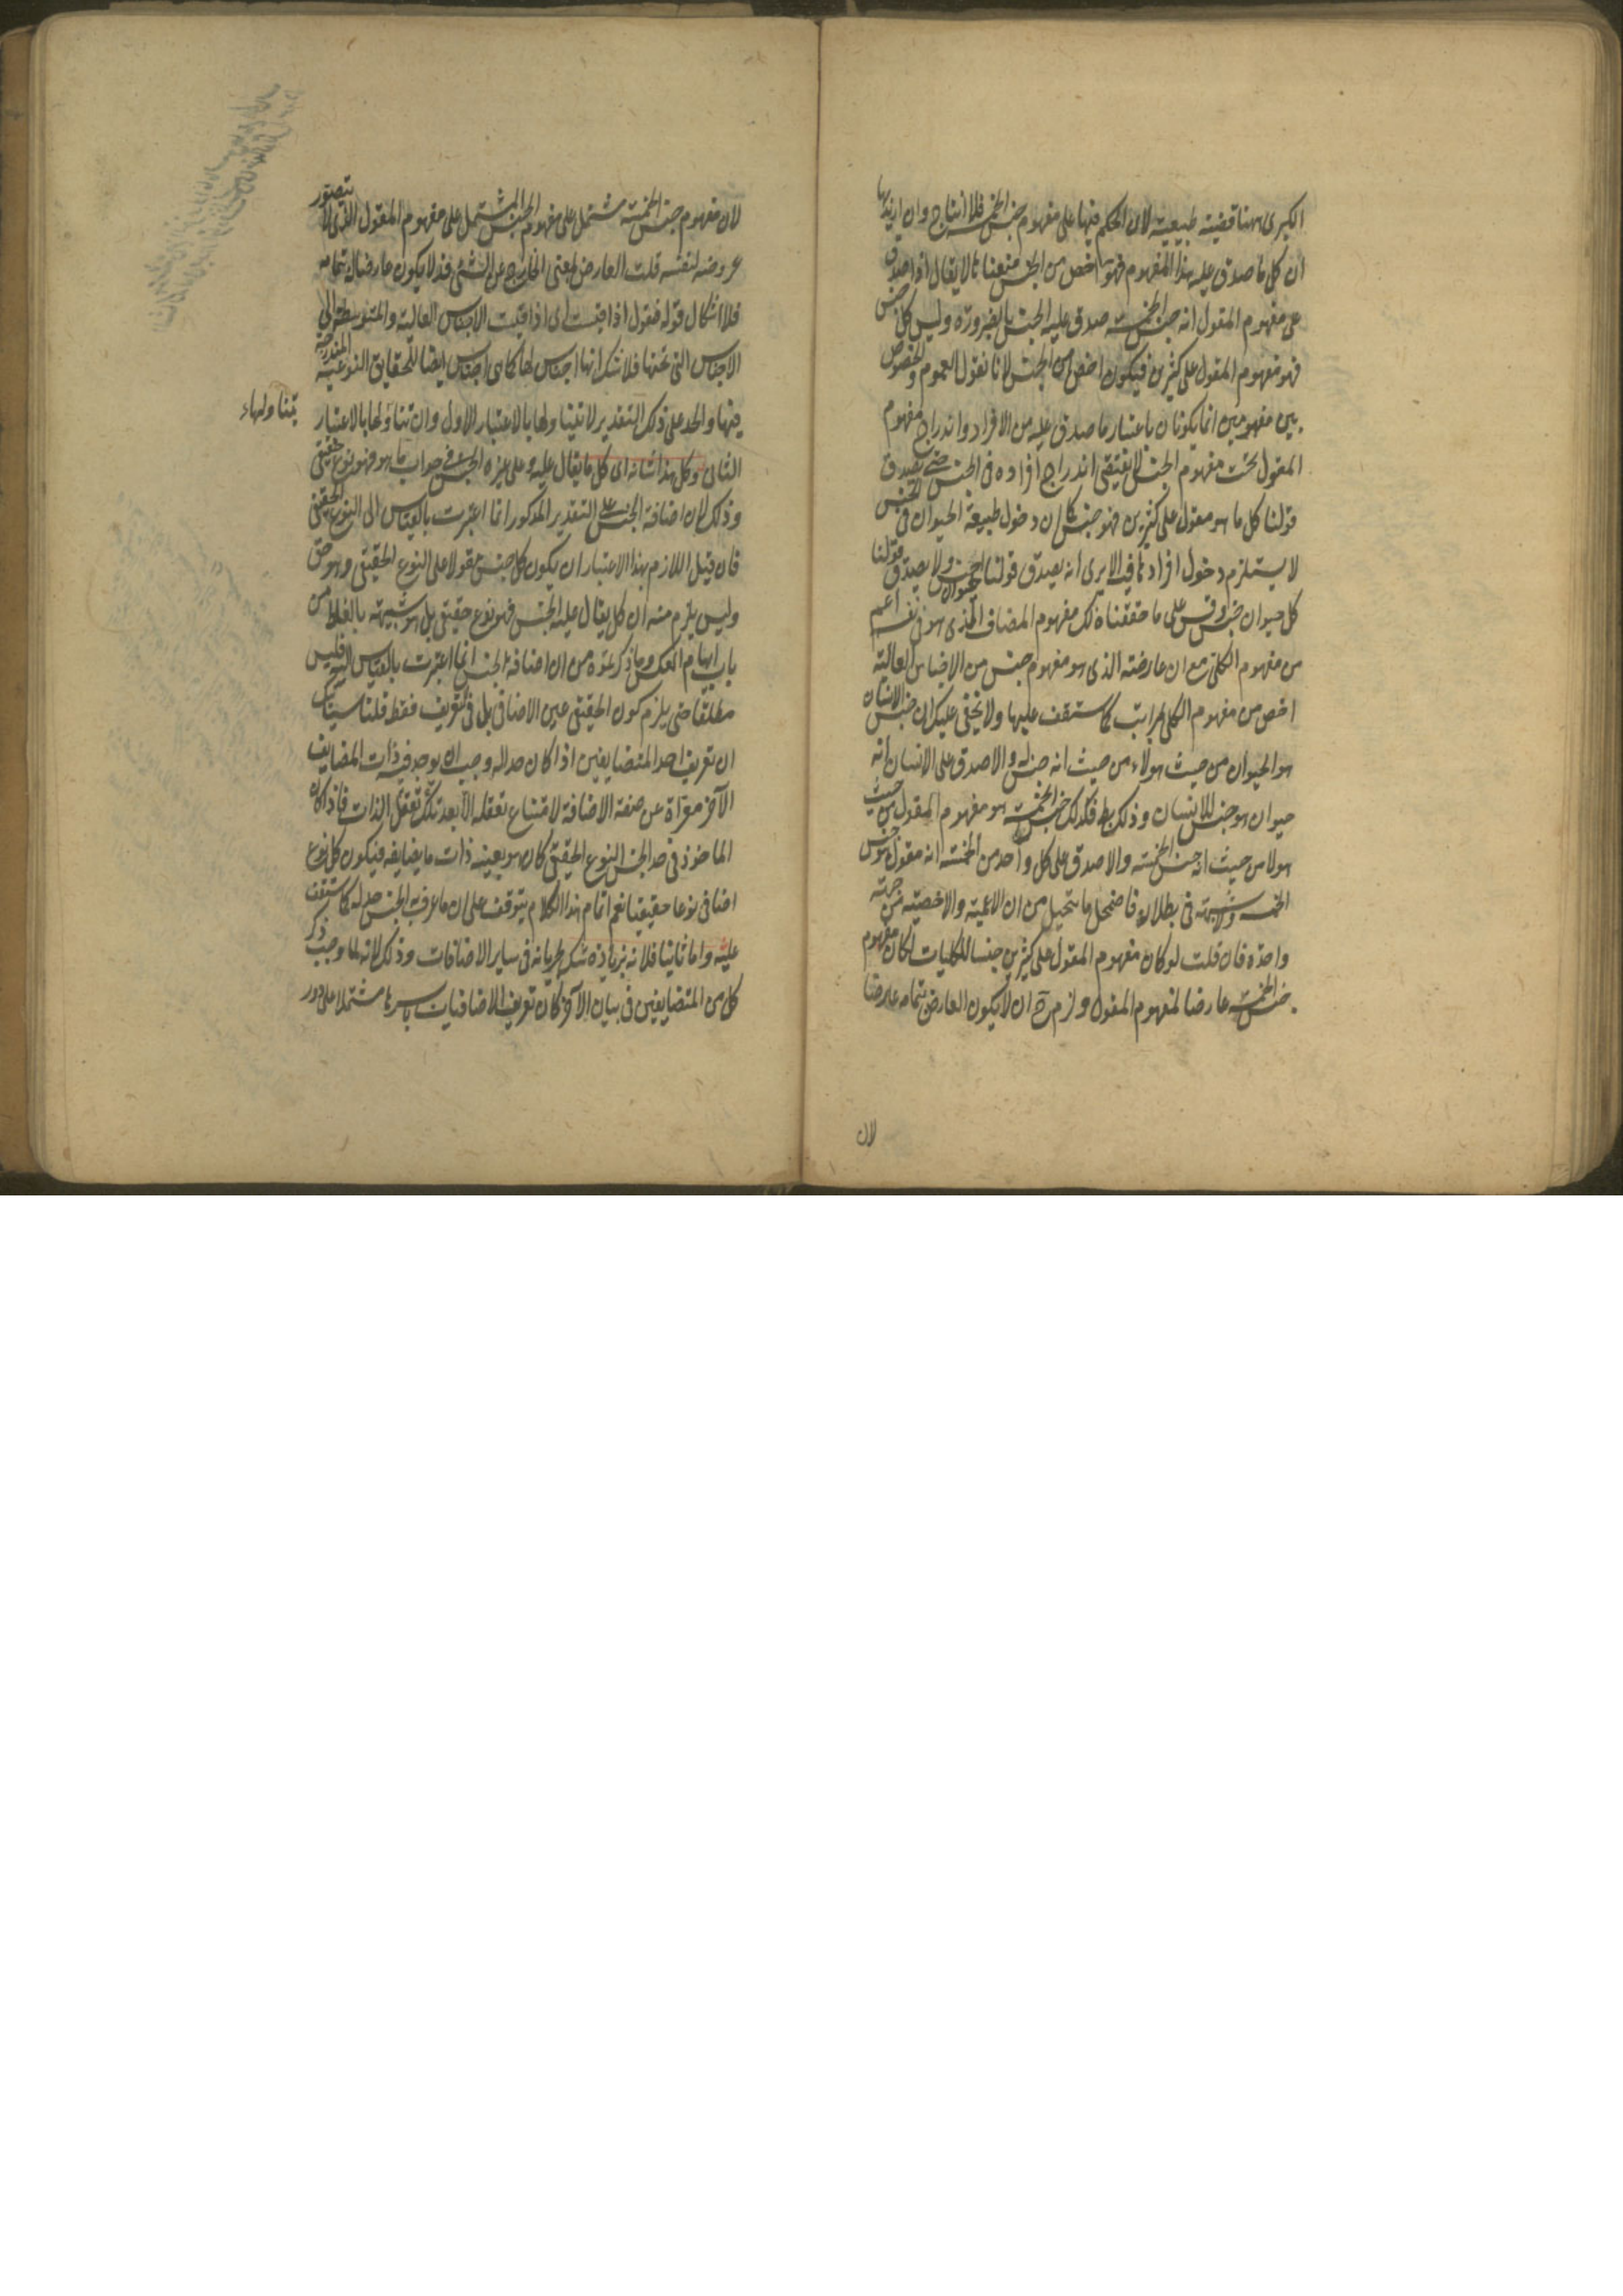 الكبرى ههنا قضية طبيعية لان الحكم فيها على مفهوم جنس الخمسة فلا انتاج وان اريد بها
ان كل ما صدق عليه هذا المفهوم فهو اخص من الجنس منعنا لا يقال اذا صدق
على مفهوم المقول انه جنس الخمسة صدق عليه الجنس بالضرورة وليس كل جنس
فهو مفهوم المقول على كثيرين فيكون اخص من الجنس لانا نقول العموم والخصوص
بين مفهومين انما يكونان باعتبار ما صدق عليه من الافراد واندراج مفهوم
المقول تحت مفهوم الجنس لا يقتضى اندراج افراده فى الجنس حتى يصدق
قولنا كل ما هو مقول على كثيرين فهو جنس كما ان دخول طبيعة الحيوان فى الجنس
لا يستلزم دخول افرادها فيه الا يرى انه يصدق قولنا الحيوان جنس ولا يصدق قولنا
كل حيوان جنس وقس على ما حققناه لك مفهوم المضاف الذى هو فى نفسه اعم
من مفهوم الكلى مع ان عارضه الذى هو مفهوم جنس من الاجناس العالية
اخص من مفهوم الكلى بمراتب كما ستقف عليها ولا يخفى عليك ان جنس الانسان
هو الحيوان من حيث هو لا من حيث انه جنس له والا صدق على الانسان انه
حيوان هو جنس للانسان وذلك بط فكذلك جنس الخمسة هو مفهوم المقول من حيث
هو لا من حيث انه جنس الخمسة والا صدق على كل واحد من الخمسة انه مقول هو جنس
الخمسة ولا شبهة فى بطلانه فاضمحل ما يتخيل من ان الاعمية والاخصية من جهة
واحدة فان قلت لو كان مفهوم المقول على كثيرين جنسا للكليات لكان مفهوم
جنس الخمسة عارضا لمفهوم المقول ولزم ح ان لا يكون العارض بتمامه عارضا
لان
لان مفهوم جنس الخمسة مشتمل على مفهوم الجنس المشتمل على مفهوم المقول الذى لا يتصور
عروضه لنفسه قلت العارض بمعنى الخارج عن الشئ قد لا يكون عارضا له بتمامه
فلا اشكال قوله فنقول اذا قيست اى اذا قيست الاجناس العالية والمتوسطة الى
الاجناس التى تحتها فلا شك انها اجناس لها كما هى اجناس ايضا للحقايق النوعية المندرجة
فيها والحد على ذلك التقدير لا يتناولها بالاعتبار الاول وان تناولها بالاعتبار
يتناولهاء
الثانى وكل هذا شانه اى كل ما يقال عليه وعلى غيره الجنس فى جواب ما هو فهو نوع حقيقى
وذلك لان اضافة الجنس على التقدير المذكور انما اعتبرت بالقياس الى النوع الحقيقى
فان قيل اللازم بهذا الاعتبار ان يكون كل جنس مقولا على النوع الحقيقى وهو حق
وليس يلزم منه ان كل يقال عليه الجنس فهو نوع حقيقى بل هو شبيهة بالغلط من
باب ايهام العكس وما ذكرتموه من ان اضافة الجنس انما اعتبرت بالقياس اليه فليس
مطلقا حتى يلزم كون الحقيقى عين الاضافى بل فى تعريف فقط قلنا سياتيك
ان تعريف احد المتضايفين اذا كان حدا له وجب ان يوجد فيه ذات المضايف
الآخر معراة عن صفة الاضافة لامتناع تعقله الا بعد تعقل تلك الذات فاذا كان
الماخوذ فى حد الجنس النوع الحقيقى كان هو بعينه ذات ما يضايفه فيكون كل نوع
اضافى نوعا حقيقيا نعم اتمام هذا الكلام يتوقف على ان ما عرف به الجنس حد له كما ستقف
عليه واما ثانيا فلانه بزيادة شك بجريانه فى ساير الاضافات وذلك لانه لما وجب ذكر
كل من المتضايفين فى بيان الآخر كان تعريف الاضافيات باسرها مشتملا على دور